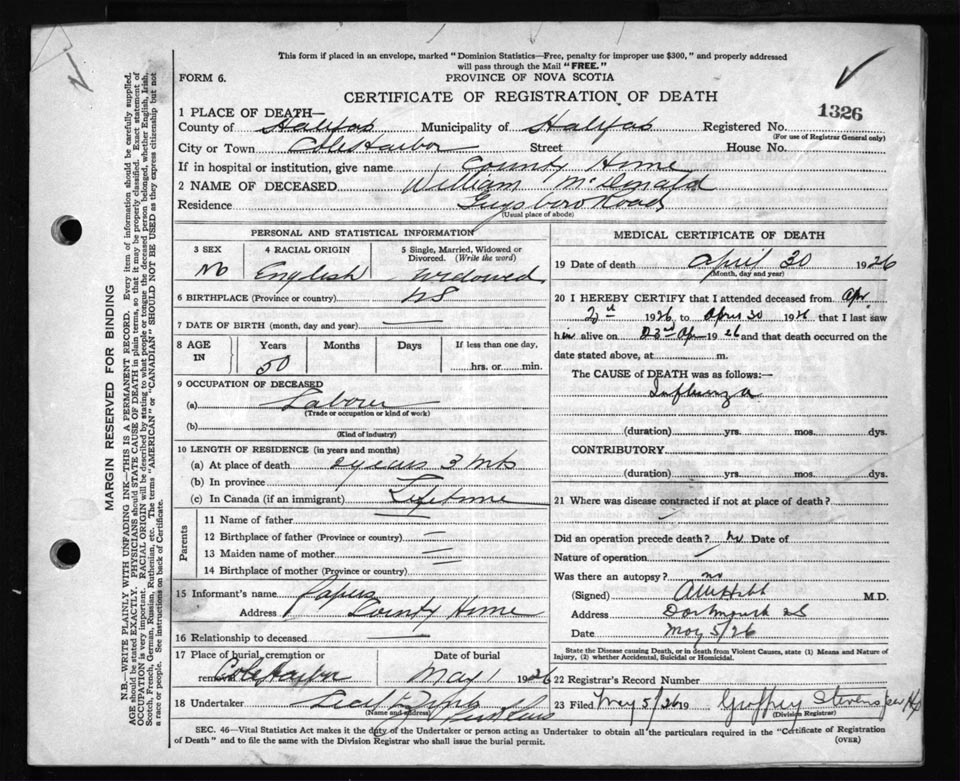 This form if placed in an envelope, marked "Dominion Statistics—Free, penalty for improper use $300," and properly addressed
will pass through the Mail "FREE."
FORM 6.
PROVINCE OF NOVA SCOTIA
CERTIFICATE OF REGISTRATION OF DEATH
1326
1 PLACE OF DEATH—
County of Halifax Municipality of Halifax Registered No.
(For use of Registrar General only)
City or Town Cole Harbor Street House No.
If in hospital or institution, give name County Home
2 NAME OF DECEASED William McDonald
Residence Guysboro Road
(Usual place of abode)
PERSONAL AND STATISTICAL INFORMATION
3 SEX M
4 RACIAL ORIGIN English
5 Single, Married, Widowed or Divorced. (Write the word) Widowed
6 BIRTHPLACE (Province or country) NS
7 DATE OF BIRTH (month, day and year) —
8 AGE IN Years Months Days If less than one day,
50 hrs. or min.
9 OCCUPATION OF DECEASED
(a) Labourer
(Trade or occupation or kind of work)
(b)
(Kind of industry)
10 LENGTH OF RESIDENCE (in years and months)
(a) At place of death years 3 mts
(b) In province
(c) In Canada (if an immigrant) Lifetime
Parents
11 Name of father —
12 Birthplace of father (Province or country) —
13 Maiden name of mother —
14 Birthplace of mother (Province or country)
15 Informant's name Papers
Address County Home
16 Relationship to deceased —
17 Place of burial, cremation or removal Cole Harbor
Date of burial May 1 1926
18 Undertaker
(Name and address)
MEDICAL CERTIFICATE OF DEATH
19 Date of death April 30 1926
(Month, day and year)
20 I HEREBY CERTIFY that I attended deceased from Apr
1926 to April 30 1926 that I last saw
him alive on Apr 1926 and that death occurred on the
date stated above, at m.
The CAUSE of DEATH was as follows:—
Influenza
(duration) yrs. mos. dys.
CONTRIBUTORY
(duration) yrs. mos. dys.
21 Where was disease contracted if not at place of death?
Did an operation precede death? No Date of
Nature of operation
Was there an autopsy? no
(Signed) M.D.
Address Dartmouth NS
Date May 5/26
State the Disease causing Death, or in death from Violent Causes, state (1) Means and Nature of
Injury, (2) whether Accidental, Suicidal or Homicidal.
22 Registrar's Record Number
23 Filed May 5/26 19 Geoffrey Stevens per
(Division Registrar)
SEC. 46—Vital Statistics Act make it the duty of the Undertaker or person acting as Undertaker to obtain all the particulars required in the "Certificate of Registration
of Death" and to file the same with the Division Registrar who shall issue the burial permit. (OVER)
MARGIN RESERVED FOR BINDING
N.B.—WRITE PLAINLY WITH UNFADING INK—THIS IS A PERMANENT RECORD. Every item of information should be carefully supplied.
AGE should be stated EXACTLY. PHYSICIANS should STATE CAUSE OF DEATH in plain terms, so that it may be properly classified. Exact statement of
OCCUPATION is very important. RACIAL ORIGIN will be described by stating to what people or tongue the deceased person belonged, whether English, Irish,
Scotch, French, German, Russian, Ruthenian, etc. The terms "AMERICAN" or "CANADIAN" SHOULD NOT BE USED as they express citizenship but not
a race or people. See instructions on back of Certificate.